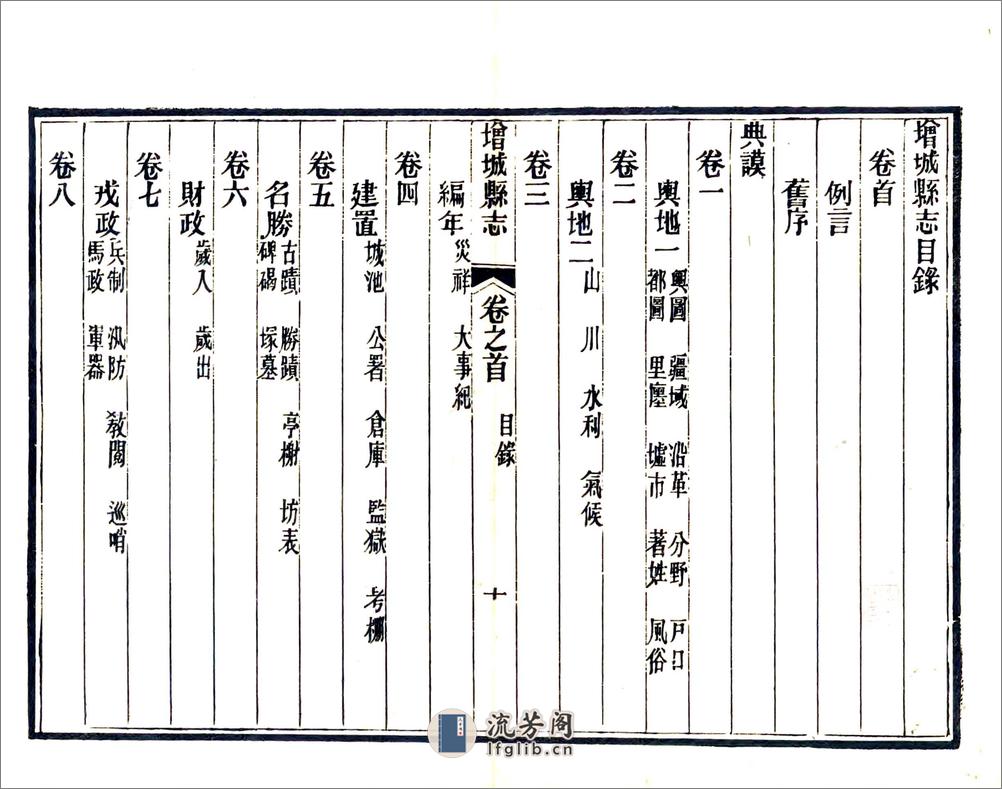 增城縣志目錄
卷首
例言
舊序
典謨
卷一
輿地一 輿圖 疆域 沿革 分野 戸口
都圖 里廛 墟市 著姓 風俗
卷二
輿地二 山 川 水利 氣候
卷三
增城縣志 卷之首 目錄 十
編年 災祥 大事紀
卷四
建置 城池 公署 倉庫 監獄 考棚
卷五
名勝 古蹟 勝蹟 亭榭 坊表
碑碣 塚墓
卷六
財政 歲入 歲出
卷七
戎政 兵制 汛防 教閱 巡哨
馬政 軍器
卷八
流芳阁
lfglib.cn